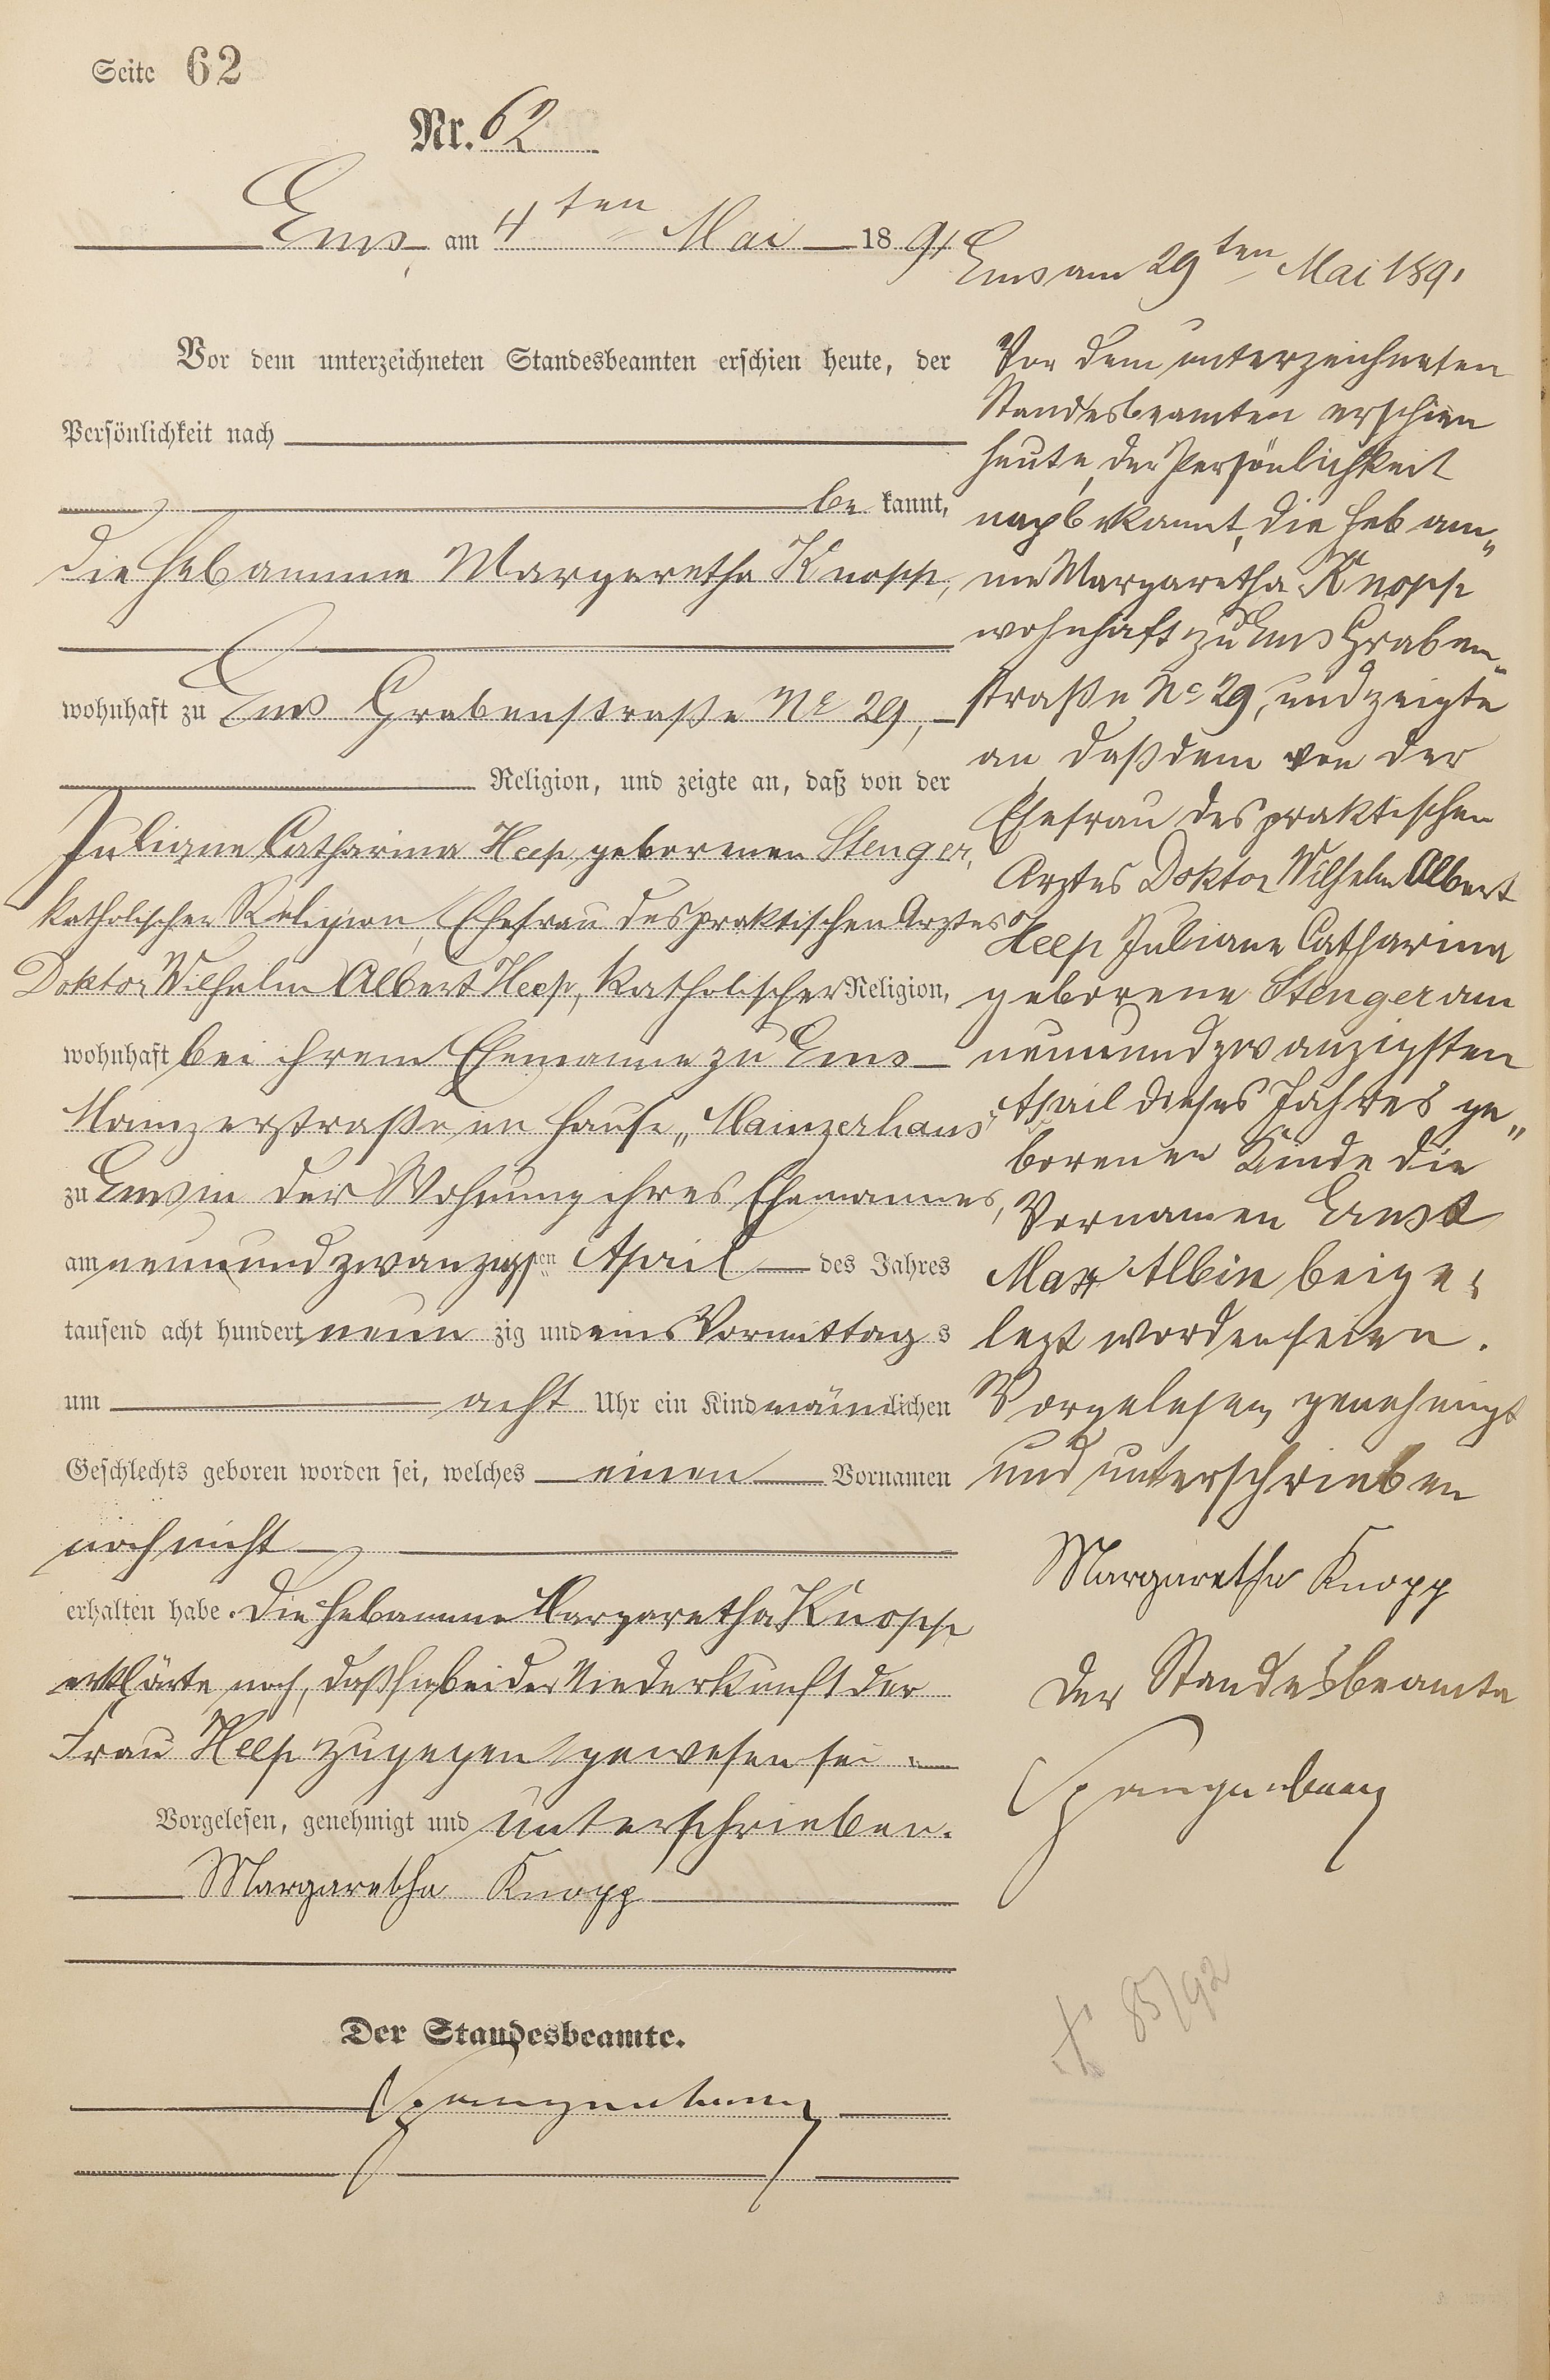 Seite 62
Nr. 62
Ems, am 4ten Mai 1891
Vor dem unterzeichneten Standesbeamten erschien heute, der
Persönlichkeit nach
be kannt,
die Hebamme Margaretha Knopp,
wohnhaft zu Ems Grabenstraße No 29,
Religion, und zeigte an, daß von der
Juliane Catharina Heep geborenen Stenger,
katholischer Religion, Ehefrau des praktischen Arztes
Doktor Wilhelm Albert Heep, katholischer Religion,
wohnhaft bei ihrem Ehemanne zu Ems
Mainzerstraße im Hause „Mainzerhaus“
zu Ems in der Wohnung ihres Ehemannes,
am neunundzwanzigsten April des Jahres
tausend acht hundert neun zig und eins Vormittag s
um acht Uhr ein Kind männlichen
Geschlechts geboren worden sei, welches einen Vornamen
noch nicht
erhalten habe. Die Hebamme Margaretha Knopp
erklärte noch, daß sie bei der Niederkunft der
Frau Heep zugegen gewesen sei.
Vorgelesen, genehmigt und unterschrieben.
Margaretha Knopp
Der Standesbeamte.
Spangenberg
Ems am 29ten Mai 1891
Vor dem unterzeichneten
Standesbeamten erschien
heute, der Persönlichkeit
nach bekannt, die Hebam„
me Margaretha Knopp
wohnhaft zu Ems Graben„
straße No 29, und zeigte
an, daß dem von der
Ehefrau des praktischen
Arztes Doktor Wilhelm Albert
Heep Juliane Catharina
geborene Stenger am
neunundzwanzigsten
April dieses Jahres ge„
borenen Kinde die
Vornamen Ernst
Max Albin beige„
legt worden seien.
Vorgelesen, genehmigt
und unterschrieben
Margaretha Knopp
Der Standesbeamte
Spangenberg
† 85/92